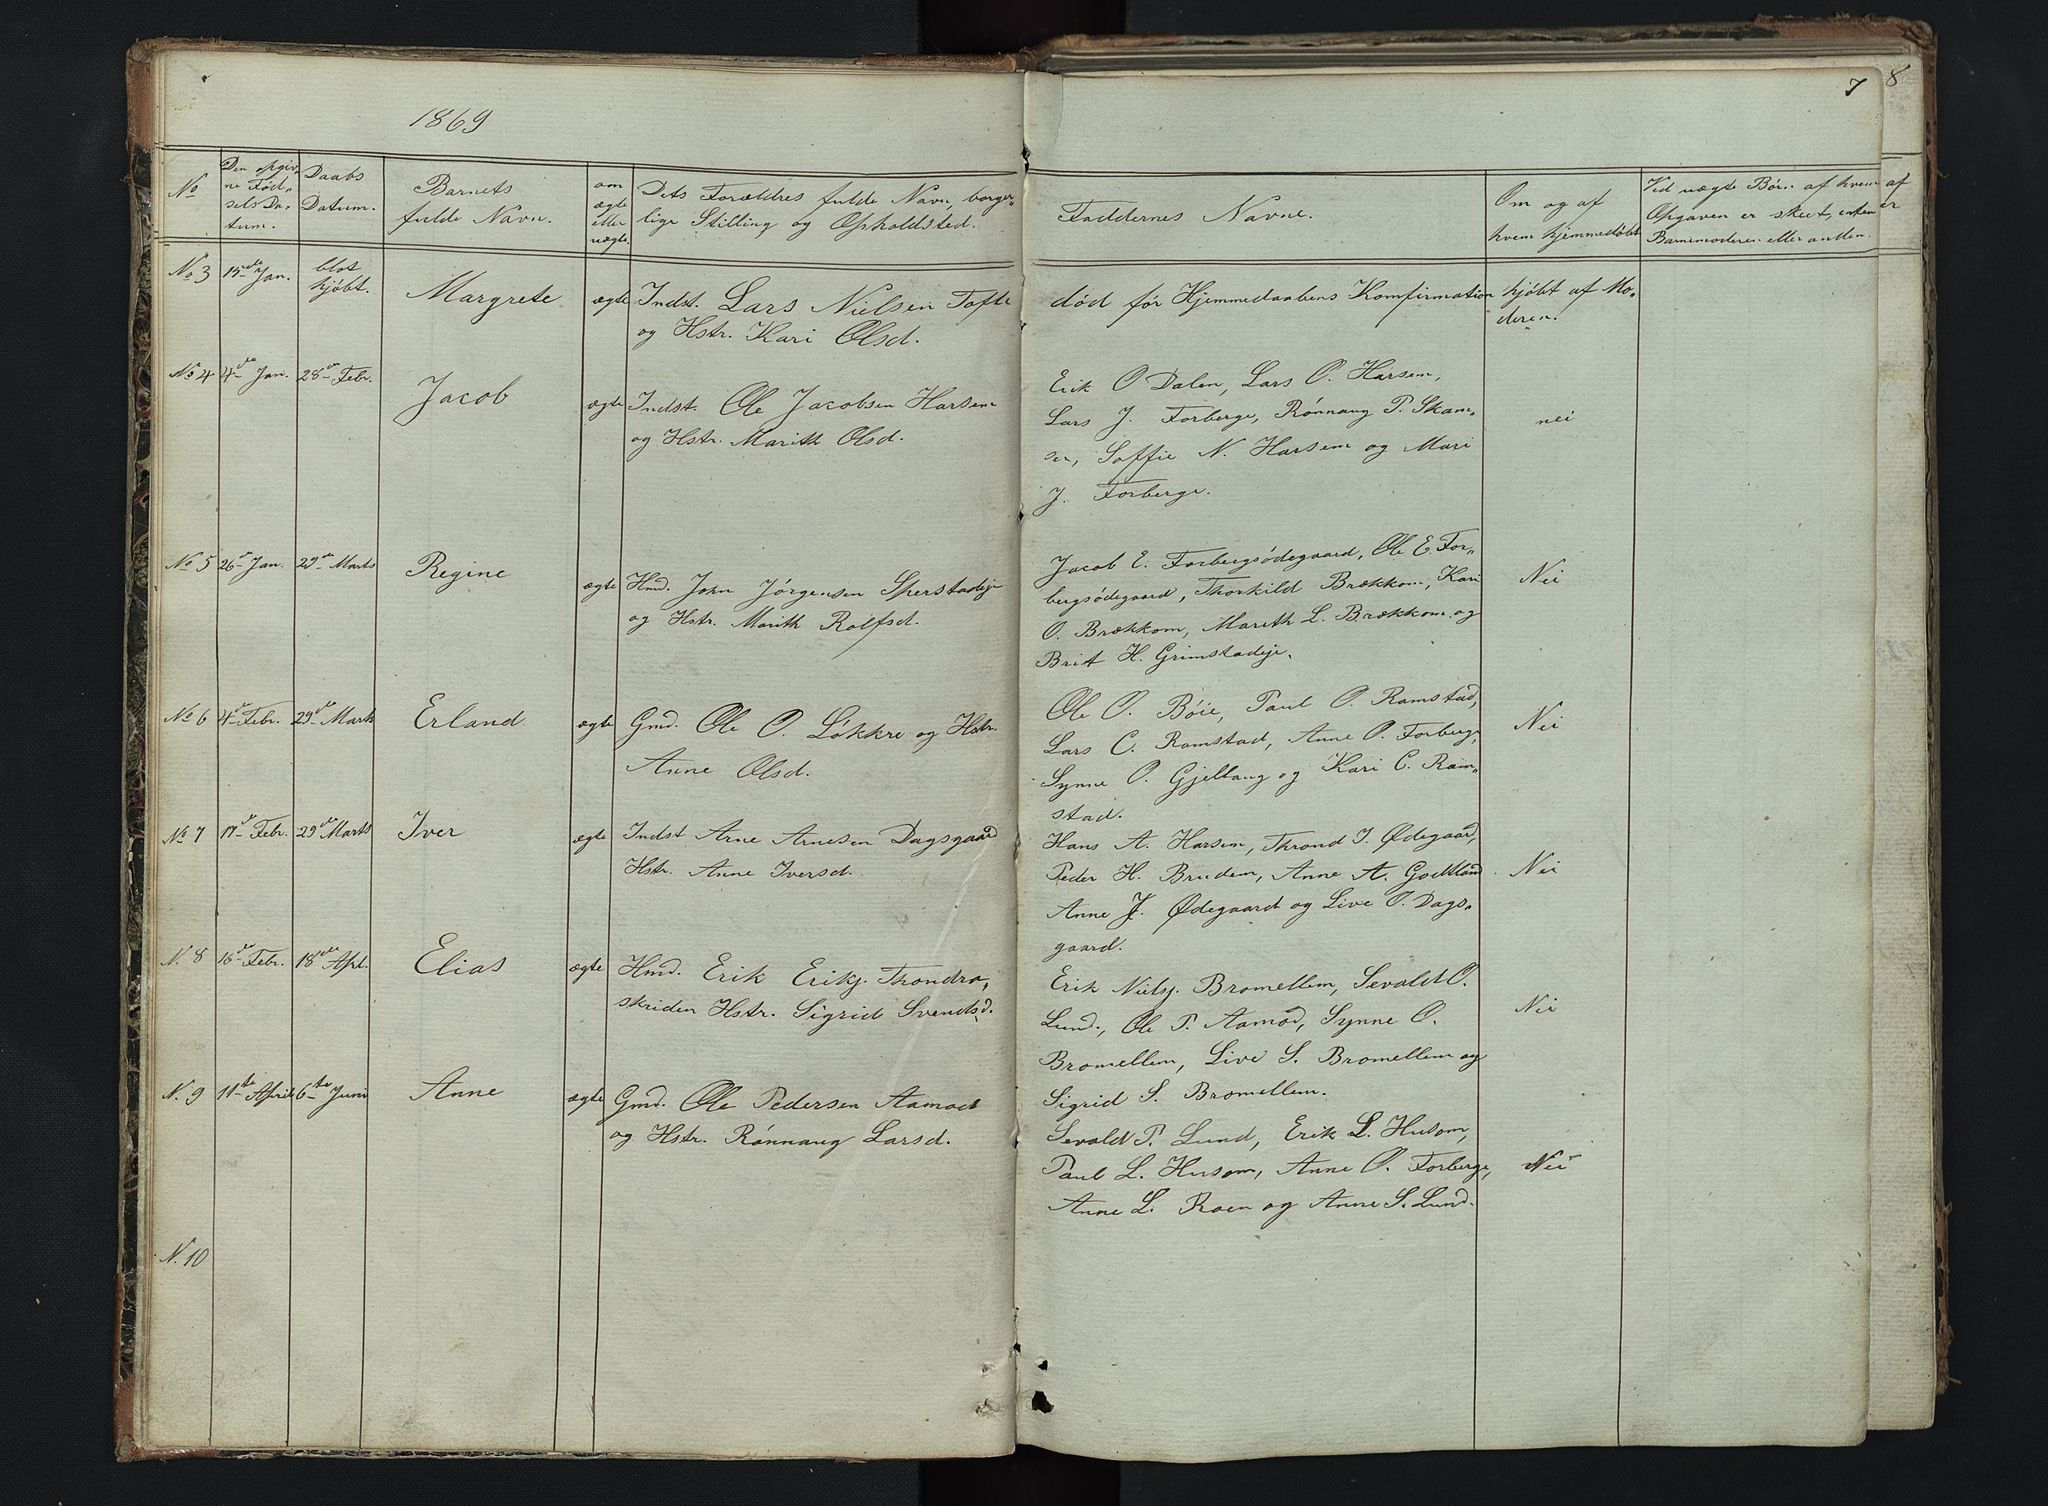 1869
7
8
No
Den opgiv-
ne Fød-
sels Da-
tum.
Daabs
Datum.
Barnets
fulde Navn.
om
ægte
eller
uægte
Dets Forældres fulde Navn, borger-
lige Stilling og Opholdsted.
Faddernes Navne.
Om og af
hvem hjemmedöbt
Ved uægte Börn af hvem
Opgaven er skeet, enten
Barnemoderen eller anden.
No 3 15de Jan. blot
hjöbt.
Margrete ægte Indst. Lars Nielsen Tofte
og Hstr. Kari Olsd.
död før Hjemmedaabens Komfirmation
hjöbt af Mo-
deren.
No 4 4de Jan. 28de Febr.
Jacob ægte Indst. Ole Jacobsen Harsem
og Hstr. Marith Olsd.
Erik O Dalen, Lars O. Harsem,
Lars J. Forberge, Rønnaug P. Skam-
ser, Soffie N. Harsem og Mari
J. Forberge.
nei
No 5 26de Jan. 29de Marts
Regine ægte Hmd. John Jörgensen Sperstadeje
og Hstr. Marith Rolfsd.
Jacob E. Forbergsödegaard, Ole E. For-
bergsödegaard, Thorkild Brækkom, Kari
O. Brækkom, Marith L. Brækkom og
Brit H. Grimstadeje.
Nei
No 6 4de Febr. 29de Marts
Erland ægte Gmd. Ole O. Løkkre og Hstr.
Anne Olsd.
Ole O. Böie, Paul O. Ramstad,
Lars C. Ramstad, Anne O. Forberge,
Synne O. Gjeltaug og Kari C. Ram-
stad.
Nei
No 7 17de Febr. 29de Marts
Iver ægte Indst Arne Arnesen Dagsgaard
Hstr. Anne Iversd.
Hans A. Harsem, Thrond I. Ødegaard,
Peder H. Brudem, Anne A. Godtland
Anne J. Ødegaard og Live O. Dags-
gaard.
Nei
N. 8 16de Febr. 18de Apl.
Elias ægte Hmd. Erik Eriks. Thondra-
skriden Hstr. Sigrid Svendsd.
Erik Niels. Bromellem, Sevaldt O.
Lund., Ole P. Aamod, Synne O.
Bromellem, Live S. Bromellem og
Sigrid S. Bromellem.
Nei
N. 9 11te April 6te Juni
Anne ægte Gmd. Ole Pedersen Aamodt
og Hstr. Rønnaug Larsd.
Sevald P. Lund, Erik L. Husom,
Paul L. Husom, Anne O. Forberge,
Anne L. Roen og Anne S. Lund.
Nei
N. 10